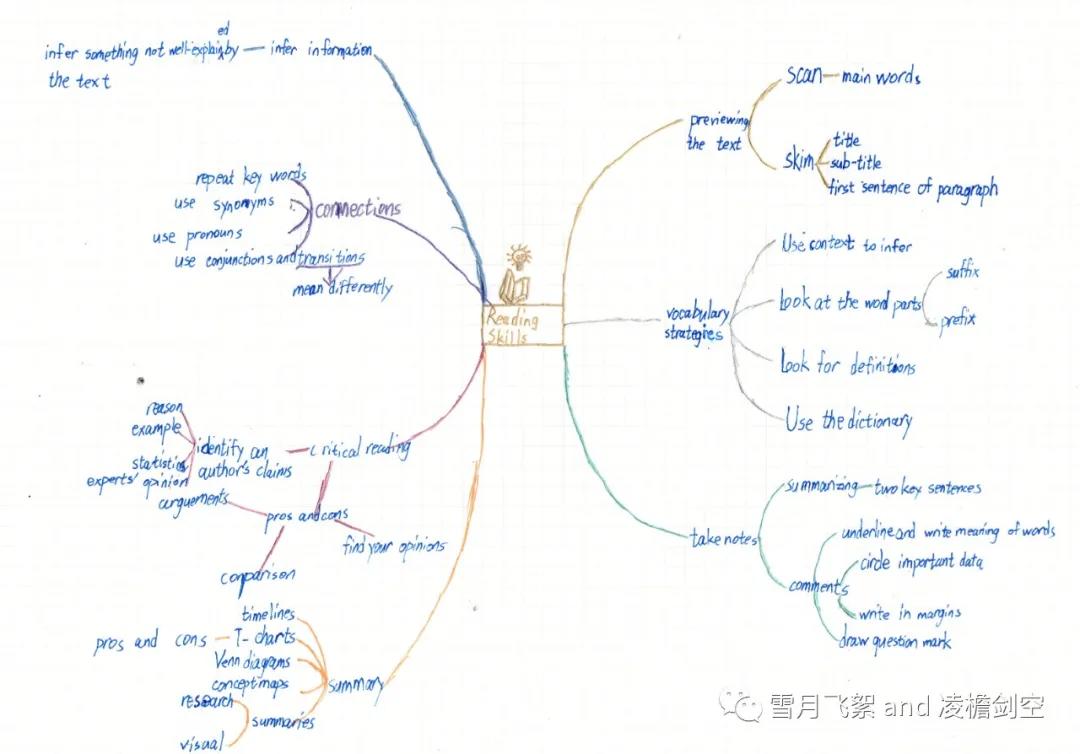 Reading
Skills
previewing
the text
scan
main words
skim
title
sub-title
first sentence of paragraph
vocabulary
strategies
Use context to infer
Look at the word parts
suffix
prefix
Look for definitions
Use the dictionary
take notes
summarizing
two key sentences
comments
underline and write meaning of words
circle important data
write in margins
draw question mark
summary
timelines
T-charts
pros and cons
Venn diagrams
concept maps
summaries
research
visual
critical reading
identify an
author's claims
reason
example
statistics
experts' opinion
pros and cons
arguements
comparison
find your opinions
connections
repeat key words
use synonyms
use pronouns
use conjunctions and transitions
mean differently
infer information
infer something not well-explained by
the text
雪月飞絮 and 凌檐剑空